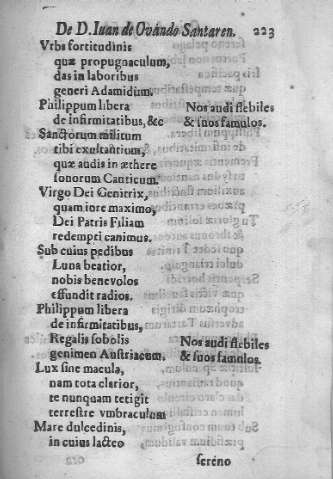 De D. Iuan de Ovando Santaren. 223
Vrbs fortitudinis
quæ propugnaculum,
das in laboribus
generi Adamidium.
Philippum libera
de infirmitatibus, &c
Nos audi flebiles
& tuos famulos.
Sanctorum militum
tibi exultantium,
quæ audis in æthere
sonorum Canticum.
Virgo Dei Genitrix,
quam iore maximo,
Dei Patris Filiam
redempti canimus.
Sub cuius pedibus
Luna beatior,
nobis benevolos
effundit radios.
Philippum libera
de infirmitatibus,
Regalis sobolis
genimen Austriacum.
Nos audi flebiles
& tuos famulos.
Lux sine macula,
nam tota clarior,
te nunquam tetigit
terrestre vmbraculum
Mare dulcedinis,
in cuius lacteo
sereno